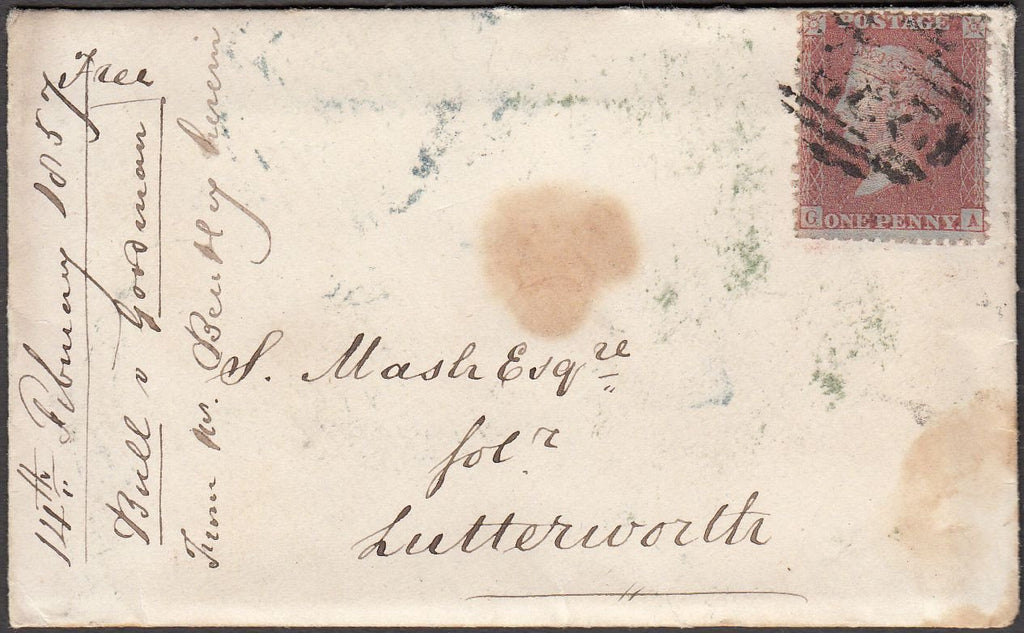 14th February 1857
Free
Bull v Goodman
From Mr. Bentley herein
POSTAGE
G ONE PENNY A
S. Mash Esqre
Solr
Lutterworth